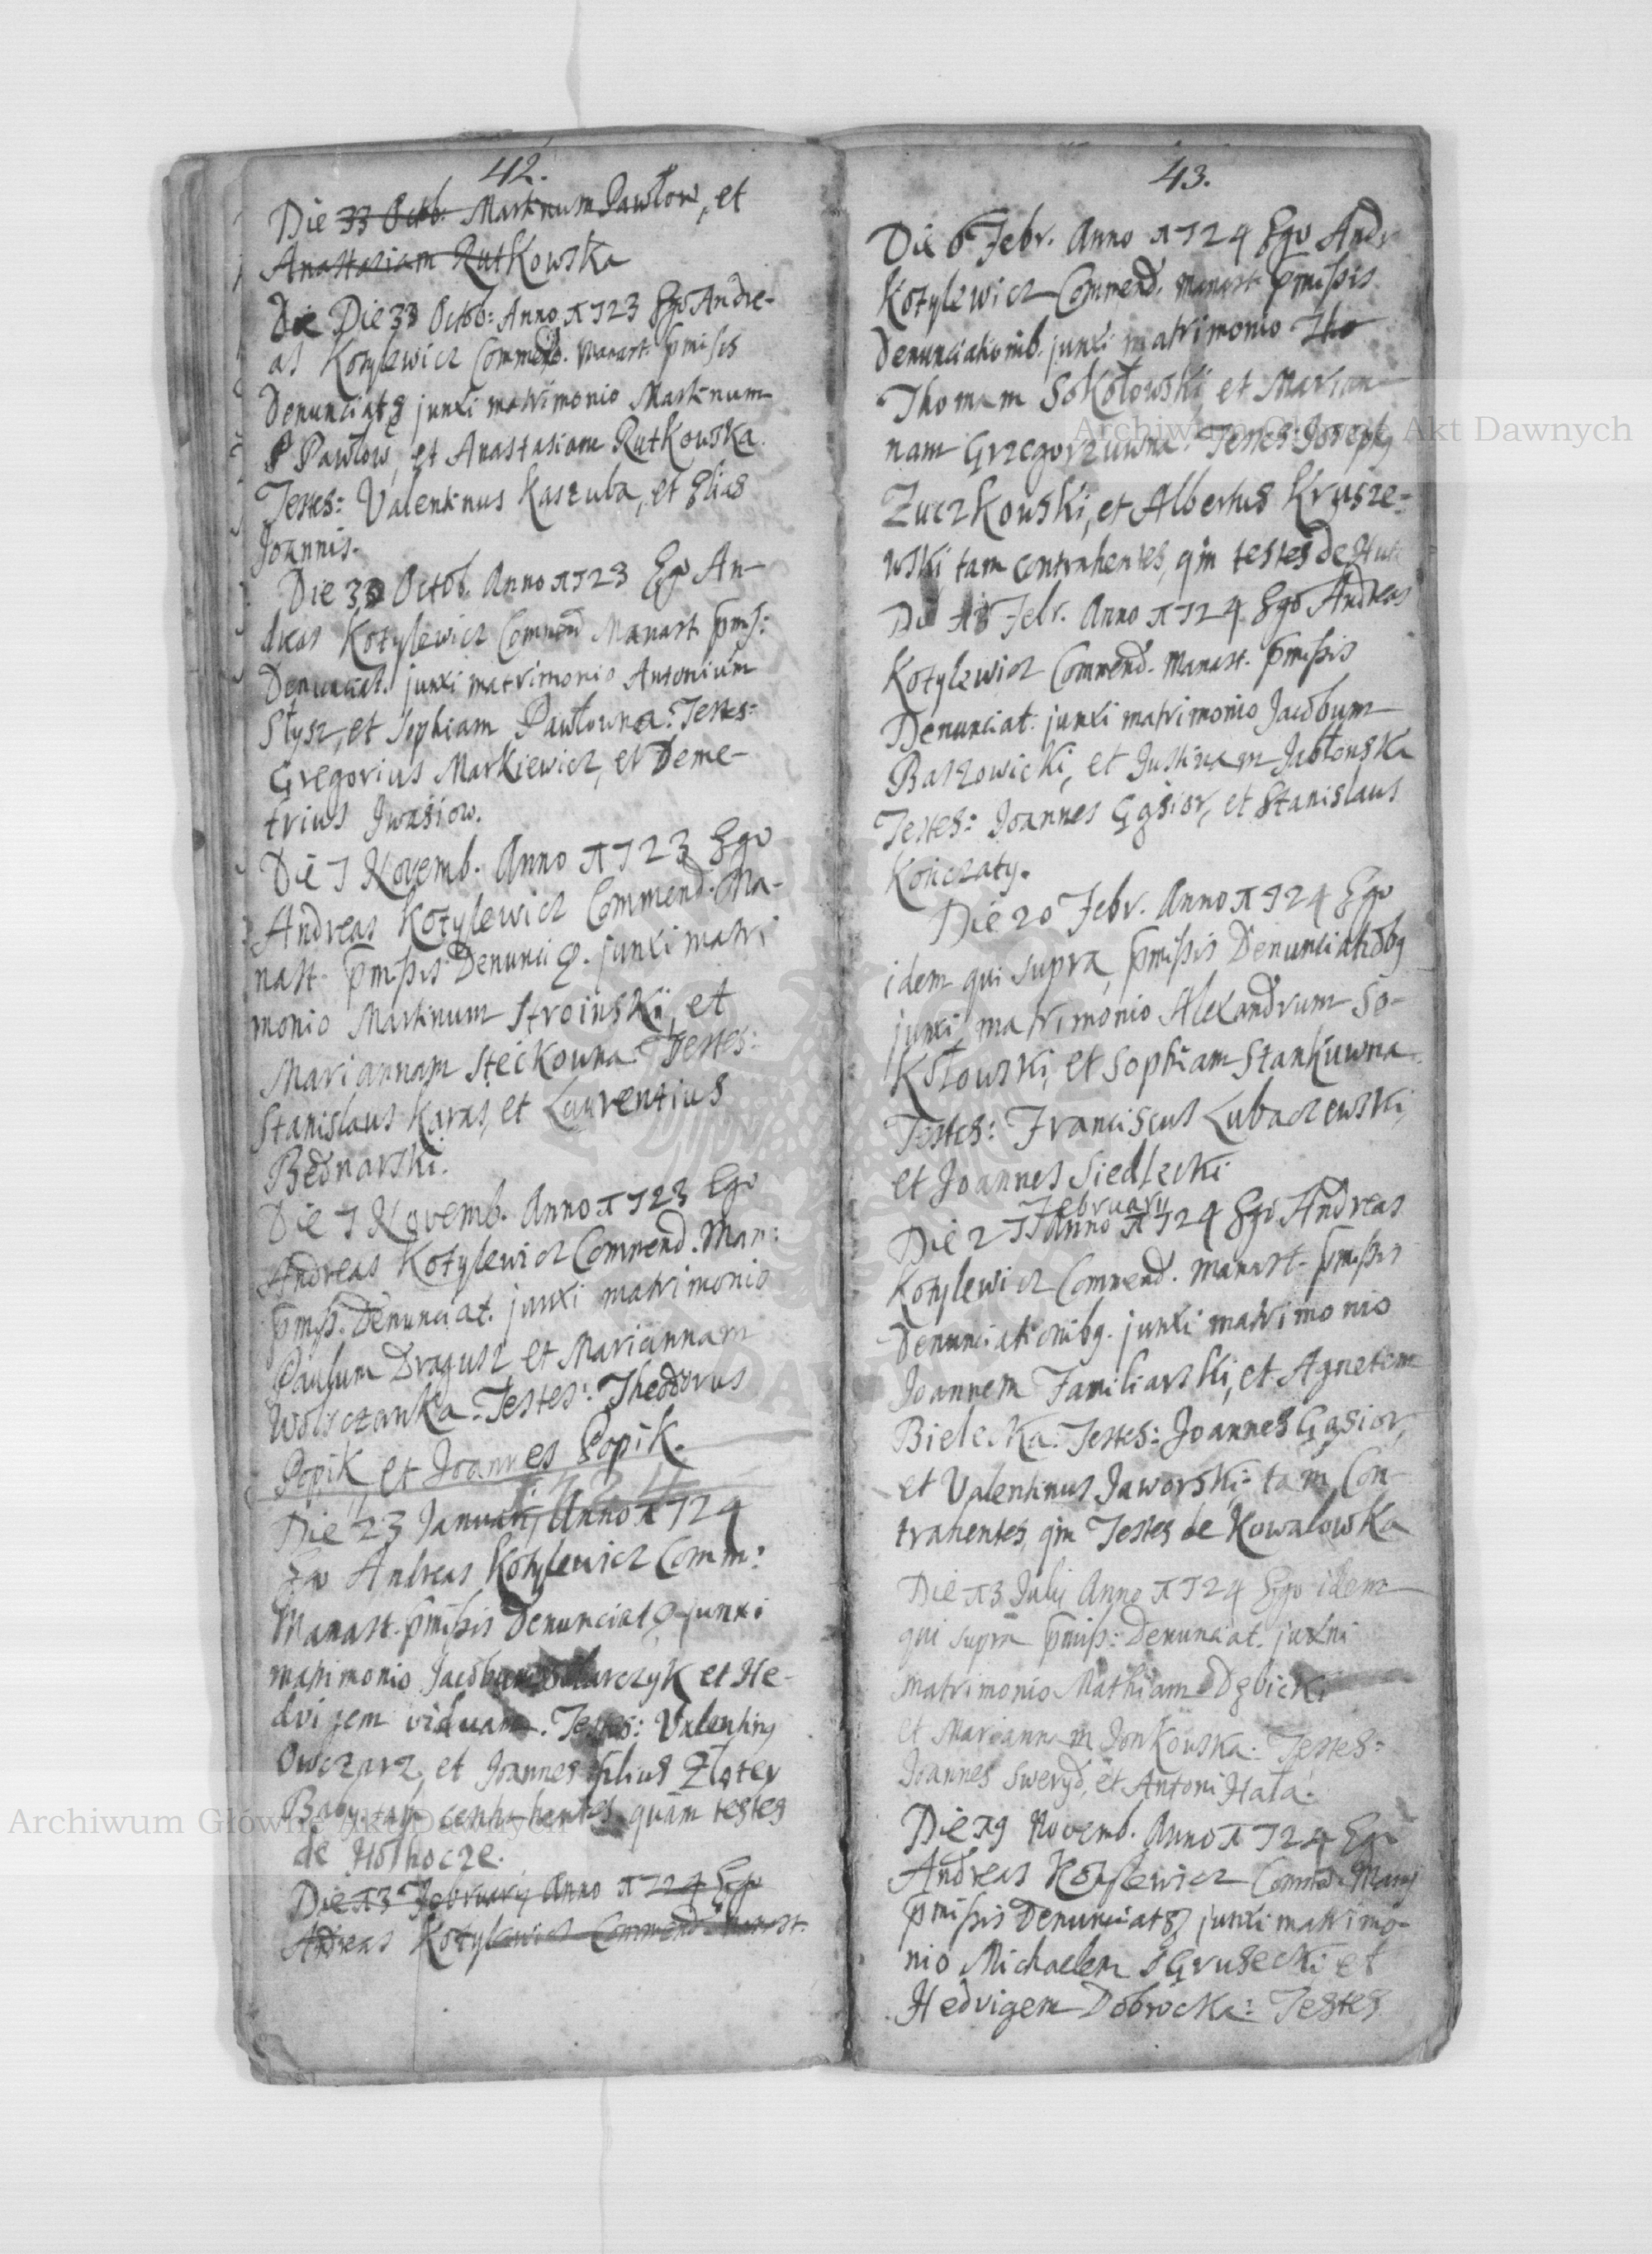 42.
Die 33 Octob: Martinum Pawłow, et
Anastasiam Rutkowska
Die Die 33 Octob: Anno 1723 Ego Andre-
as Kotylewicz Commend. Manast. pmisis
Denunciatõ junxi matrimonio Martinum
P Pawłow, et Anastasiam Rutkowska.
Testes: Valentinus Kaszuba, et Elias
Joannis.
Die 30 Octob. Anno 1723 Ego An-
dreas Kotylewicz Commend Manast. pmiß:
Denunciat. junxi matrimonio Antonium
Słysz, et Sophiam Pawłowna. Testes:
Gregorius Markiewicz, et Deme-
trius Jwasiow.
Die 7 Novemb. Anno 1723 Ego
Andreas Kotylewicz Commend. Ma-
nast. pmißis Denunci junxi matri
monio Martinum Stroinski, et
Mariannam Steckowna. Testes:
Stanislaus Karas, et Laurentius
Bednarski.
Die 7 Novemb. Anno 1723 Ego
Andreas Kotylewicz Commend. Man:
pmiß. Denunciat. junxi matrimonio
Paulum Dragusz et Mariannam
Wolsczanka. Testes: Theodorus
Popik, et Joannes Popik.
1724
Die 23 Januarij Anno 1724
Ego Andreas Kotylewicz Comm:
Manast. pmißis Denunciat junxi
matrimonio Jacobum et He-
dvigem viduam. Testes: Valentinus
Owczarz, et Joannes filius Złotey
Baby, tam contrahentes, quam testes
de Hołhocze.
Die 13 February Anno 1724 Ego
Andreas Kotylewicz Commend. Manast.
43.
Die 6 Febr. Anno 1724 Ego Andr
Kotylewicz Commend. Manast. pmißis
Denunciationib. junxi matrimonio Tho
Thomam Sokołowski, et Marian-
nam Grzegorzuwna. Testes: Joseph9
Zuczkowski, et Albertus Krusze-
wski tam contrahentes, qm testes de Hut
Die 18 Febr. Anno 1724 Ego Andreas
Kotylewicz Commend. Manast. pmißis
Denunciat: junxi matrimonio Jacobum
Baszowicki, et Justinam Jabłonska
Testes: Joannes Gąsior, et Stanislaus
Konczaty.
Die 20 Febr. Anno 1724 Ego
idem qui supra, pmißis Denunciatiõb9
junxi matrimonio Alexandrum So-
kołowski, et Sophiam Stankuwna.
Testes: Franciscus Lubaczewski,
et Joannes Siedlecki
February
Die 27 Anno 1724 Ego Andreas
Kotylewicz Commend. Manast. pmißis
Denunciationib9. junxi matrimonio
Joannem Familiarski, et Agnetem
Bielecka. Testes: Joannes Gąsior,
et Valentinus Jaworski: tam Con-
trahentes, qm Testes de Kowalowka
Die 13 Julij Anno 1724 Ego idem
qui supra pmiß: Denunciat. juxni
matrimonio Mathiam Dębicki
et Mariannam Jonkowska. Testes:
Joannes Sweryd, et Antoni Hała.
Die 19 Novemb. Anno 1724 Ego
Andreas Kotylewicz Commend. Mans
pmißis Denunciatõ junxi matrimo-
nio Michaelem Grusecki et
Hedvigem Dobrocka: Testes
Archiwum Główne Akt Dawnych
Archiwum Główne Akt Dawnych